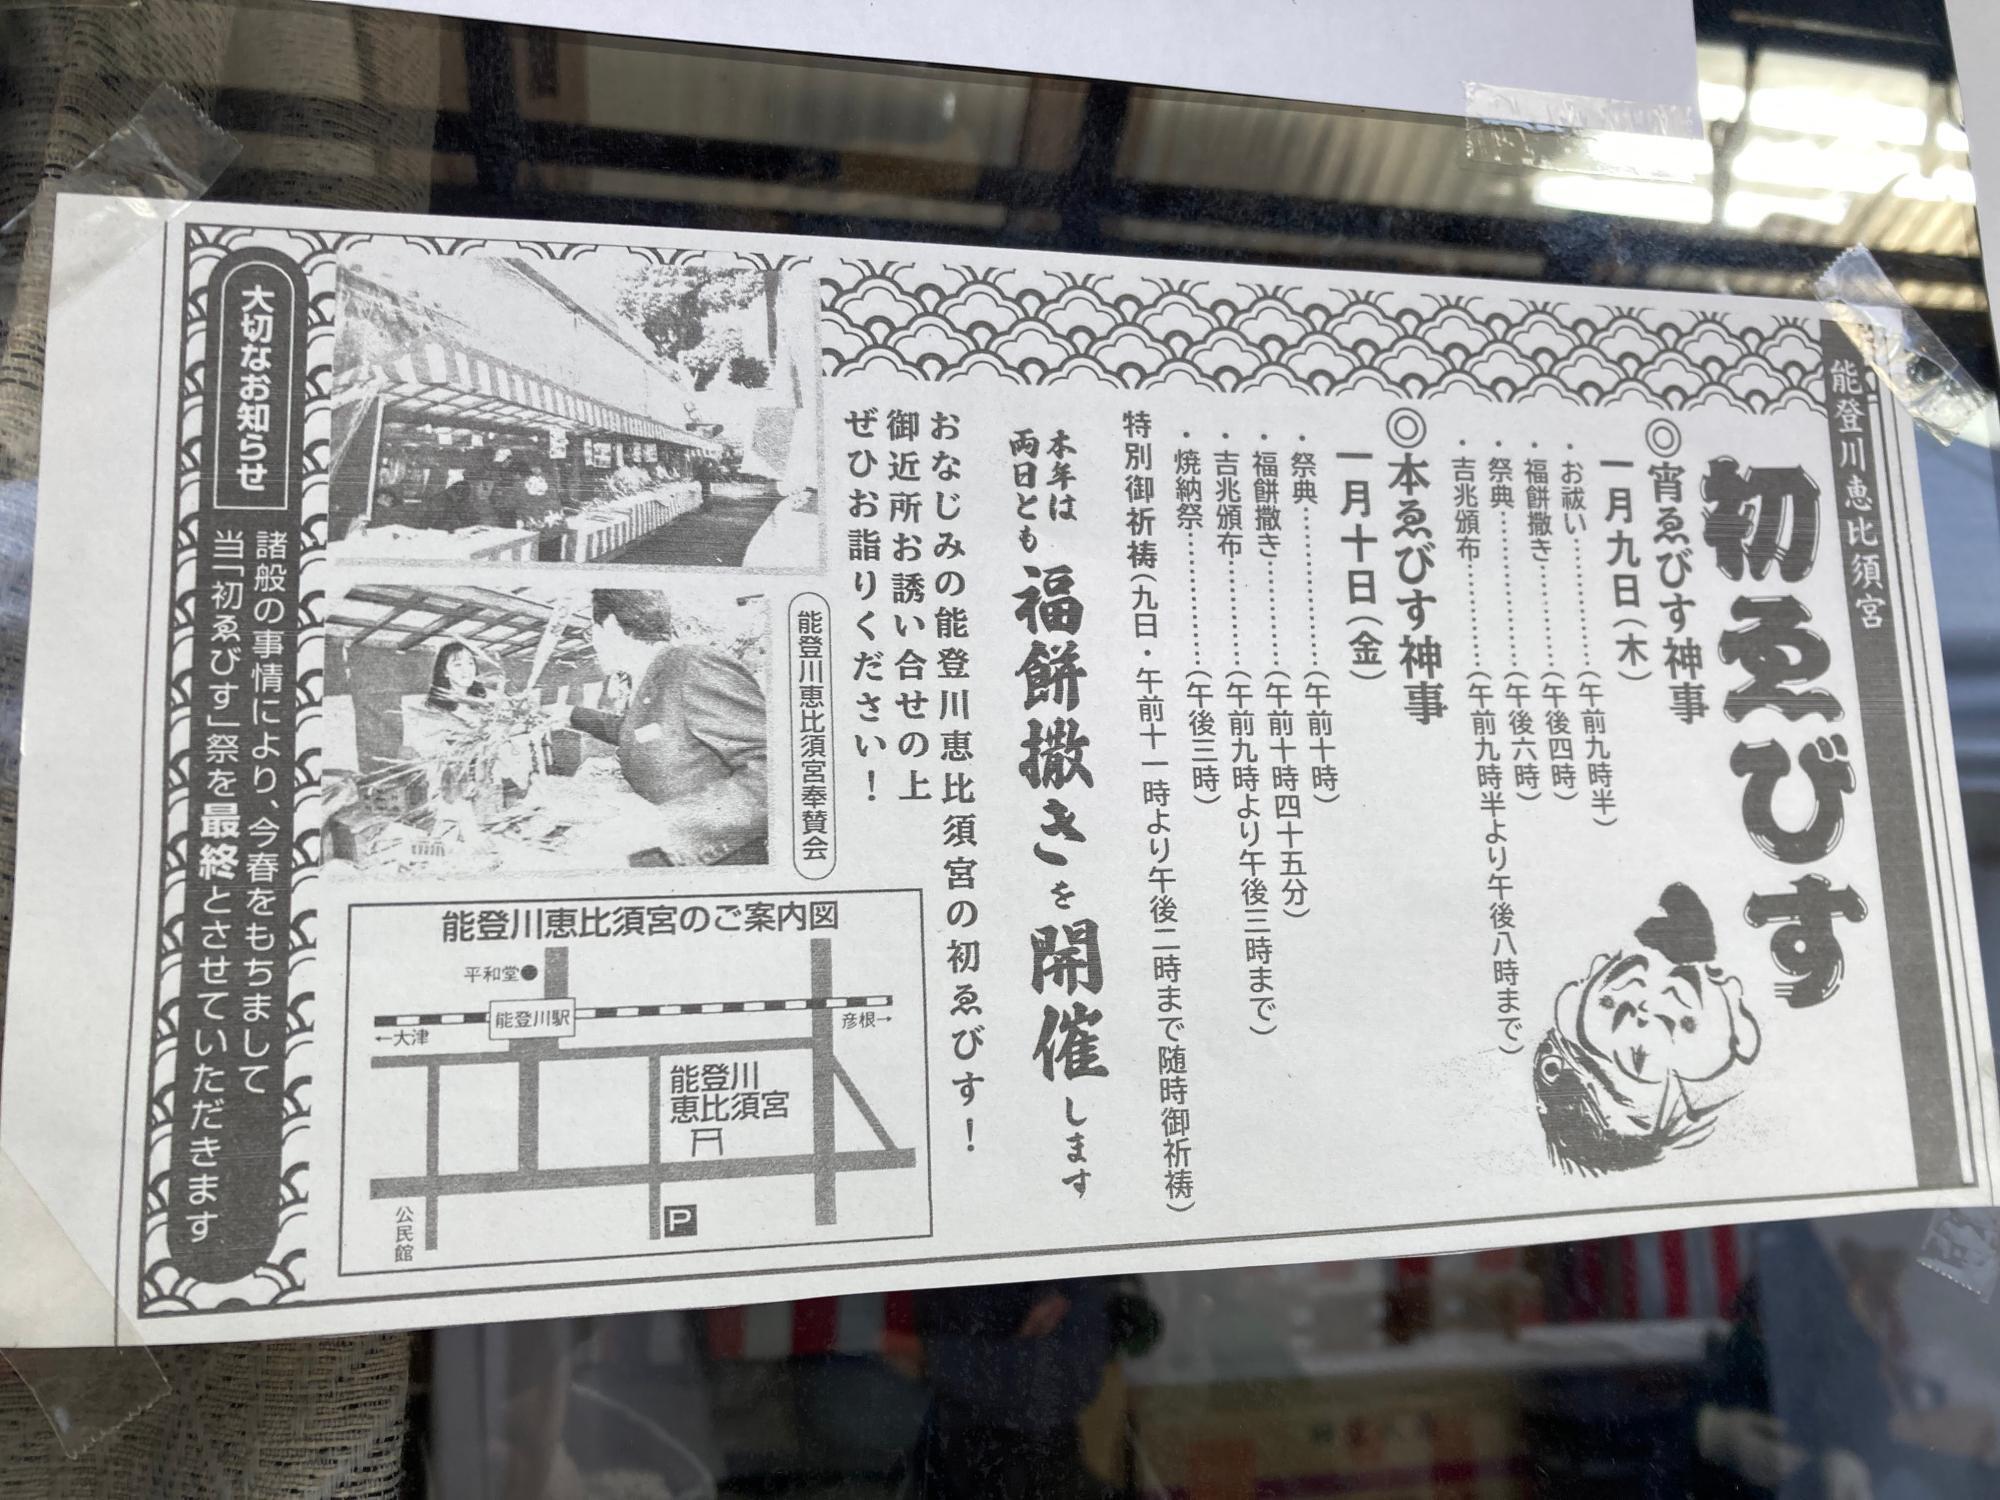 能登川恵比須宮
初ゑびす
◎宵ゑびす神事
一月九日(木)
・お祓い…………(午前九時半)
・福餅撒き…………(午後四時)
・祭典…………(午後六時)
・吉兆頒布…………(午前九時半より午後八時まで)
◎本ゑびす神事
一月十日(金)
・祭典…………(午前十時)
・福餅撒き…………(午前十時四十五分)
・吉兆頒布…………(午前九時より午後三時まで)
・焼納祭…………(午後三時)
特別御祈祷(九日・午前十一時より午後二時まで随時御祈祷)
本年は
両日とも
福餅撒きを開催します
おなじみの能登川恵比須宮の初ゑびす！
御近所お誘い合せの上
ぜひお詣りください！
能登川恵比須宮奉賛会
能登川恵比須宮のご案内図
平和堂●
能登川駅
←大津
彦根→
能登川
恵比須宮
P
公民館
大切なお知らせ
諸般の事情により、今春をもちまして
当「初ゑびす」祭を最終とさせていただきます